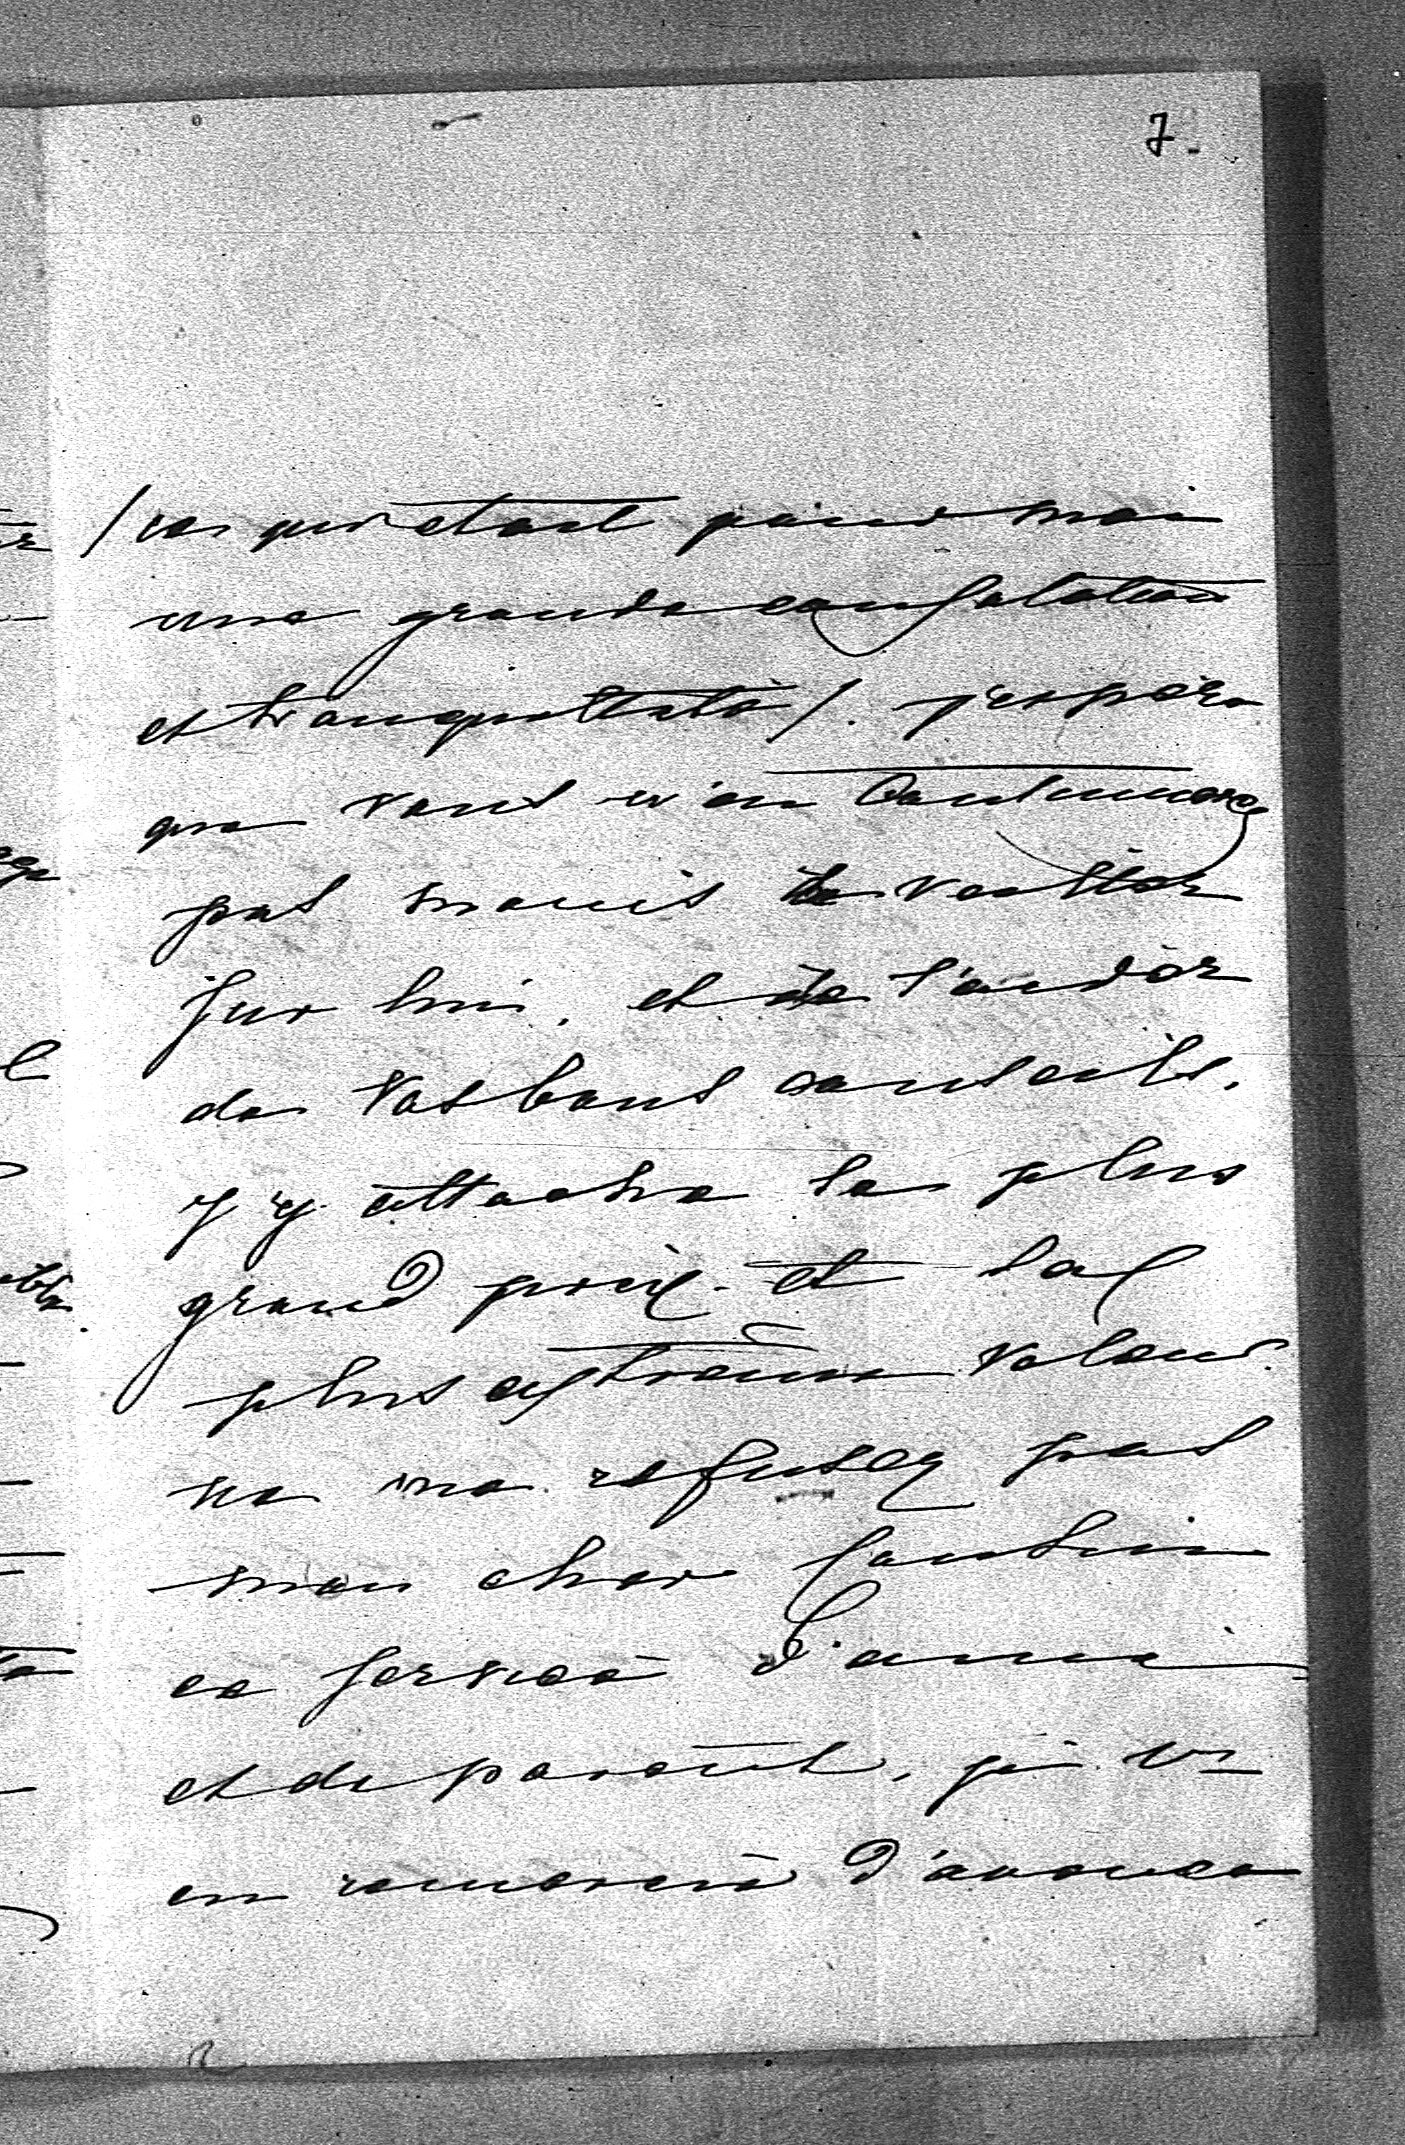 7.
/ ce qui etait pour moi
une grande consolation
et tranquillité /. j'espère
que vous n'en continuerez
pas moins de veiller
sur lui, et de l'aider
de vos bons conseils.
j'y attache le plus
grand prix et la
plus extrême valeur.
ne me refusez pas
mon cher Cousin
ce service d'ami
et de parent, je vs
en remercie d'avance